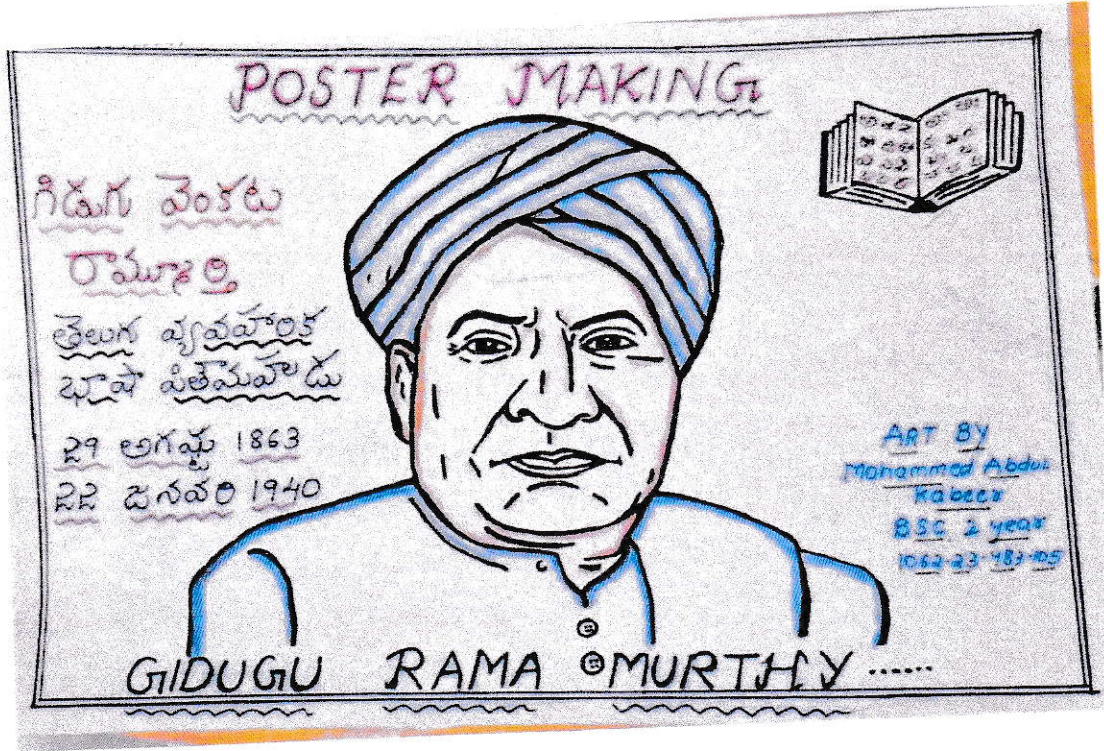 POSTER MAKING
గిడుగు వెంకట
రామ్మూర్తి
తెలుగు వ్యవహారిక
భాషా పితామహుడు
29 ఆగష్టు 1863
22 జనవరి 1940
ART BY
Mohammed Abdul
Kabeer
BSC 2 year
GIDUGU RAMA MURTHY ......